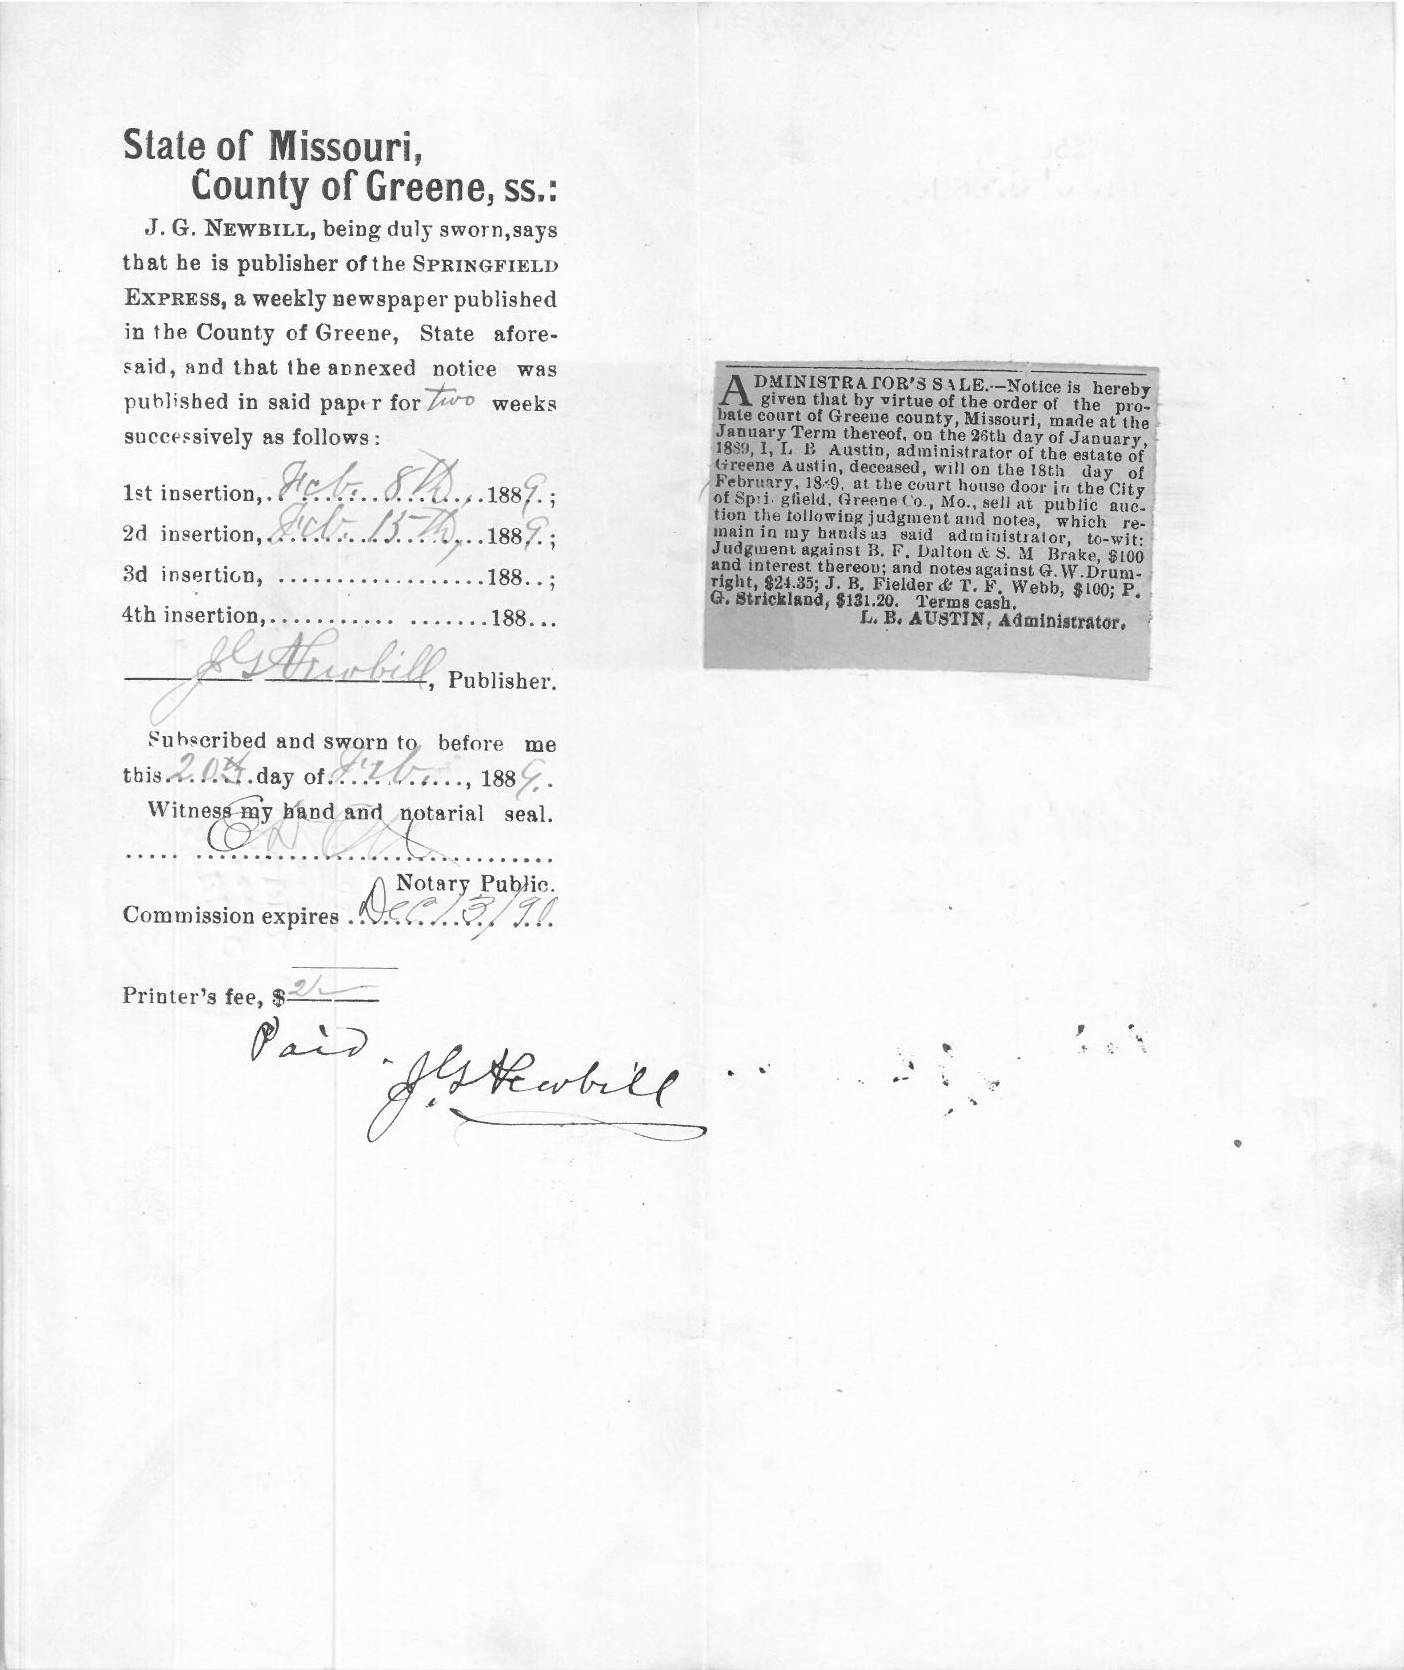 State of Missouri,
County of Greene, ss.:
J. G. NEWBILL, being duly sworn, says
that he is publisher of the SPRINGFIELD
EXPRESS, a weekly newspaper published
in the County of Greene, State afore-
said, and that the annexed notice was
published in said paper for two weeks
successively as follows:
1st insertion, Feb. 8th, 1889.;
2d insertion, Feb. 15th, 1889.;
3d insertion, ....................188..;
4th insertion,............ .......188...
J G Newbill, Publisher.
Subscribed and sworn to before me
this 20th day of Feb., 1889.
Witness my hand and notarial seal.
Notary Public.
Commission expires Dec 13/90
Printer's fee, $2
Paid.
J. G Newbill
ADMINISTRATOR'S SALE.--Notice is hereby
given that by virtue of the order of the pro-
bate court of Greene county, Missouri, made at the
January Term thereof, on the 26th day of January,
1889, I, L B Austin, administrator of the estate of
Greene Austin, deceased, will on the 18th day of
February, 1889, at the court house door in the City
of Springfield, Greene Co., Mo., sell at public auc-
tion the following judgment and notes, which re-
main in my hands as said administrator, to-wit:
Judgment against B. F. Dalton & S. M Brake, $100
and interest thereon; and notes against G. W. Drum-
right, $24.35; J. B. Fielder & T. F. Webb, $100; P.
G. Strickland, $131.20. Terms cash.
L. B. AUSTIN, Administrator.